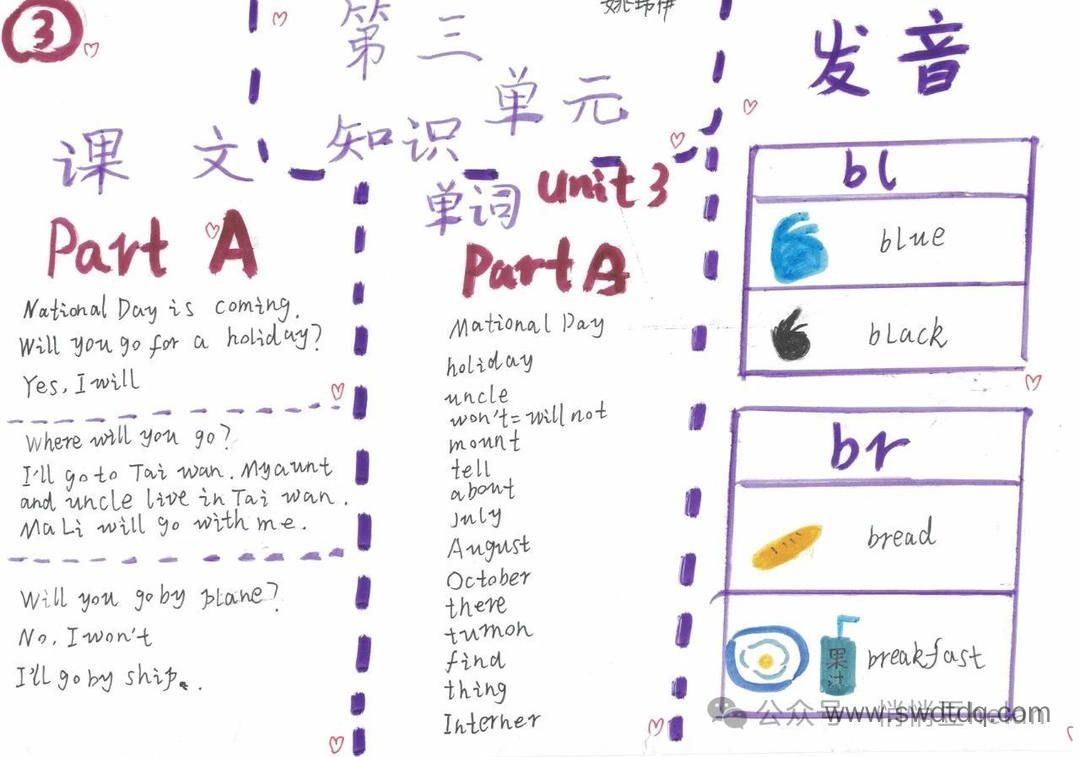 3
第三
单元
知识
课文
Part A
National Day is coming.
Will you go for a holiday?
Yes, I will
Where will you go?
I'll go to Tai wan. My aunt
and uncle live in Tai wan.
Ma Li will go with me.
Will you go by plane?
No, I won't
I'll go by ship.
单词
unit 3
Part A
Mational Day
holiday
uncle
won't=will not
mount
tell
about
July
August
October
there
turnon
find
thing
Interner
发音
bl
blue
black
br
bread
果汁
breakfast
公众号
www.swdtdq.com